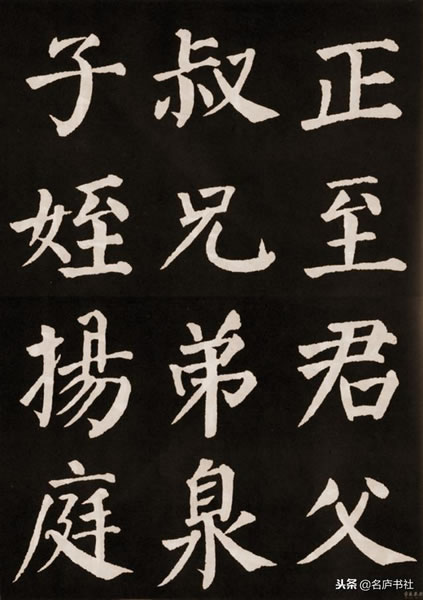 正至君父
叔兄弟泉
子姪揚庭
头条@名庐书社